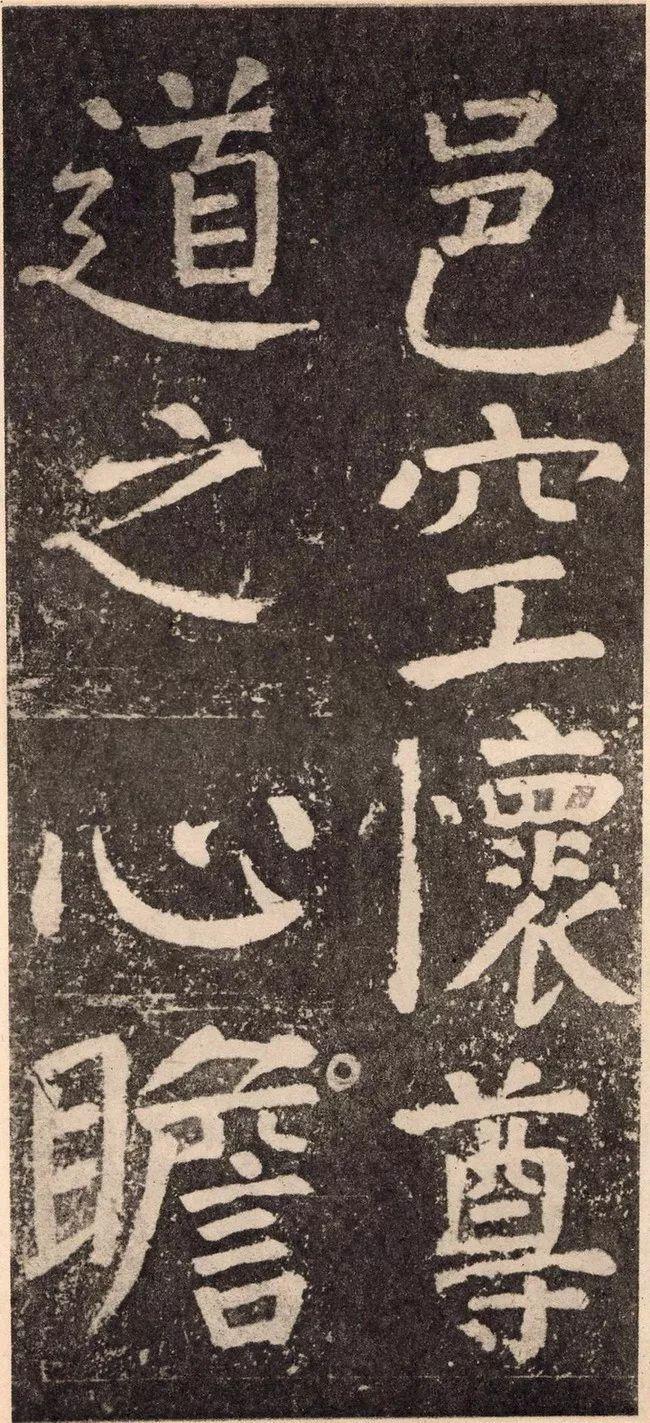 邑空懷尊
道之心瞻